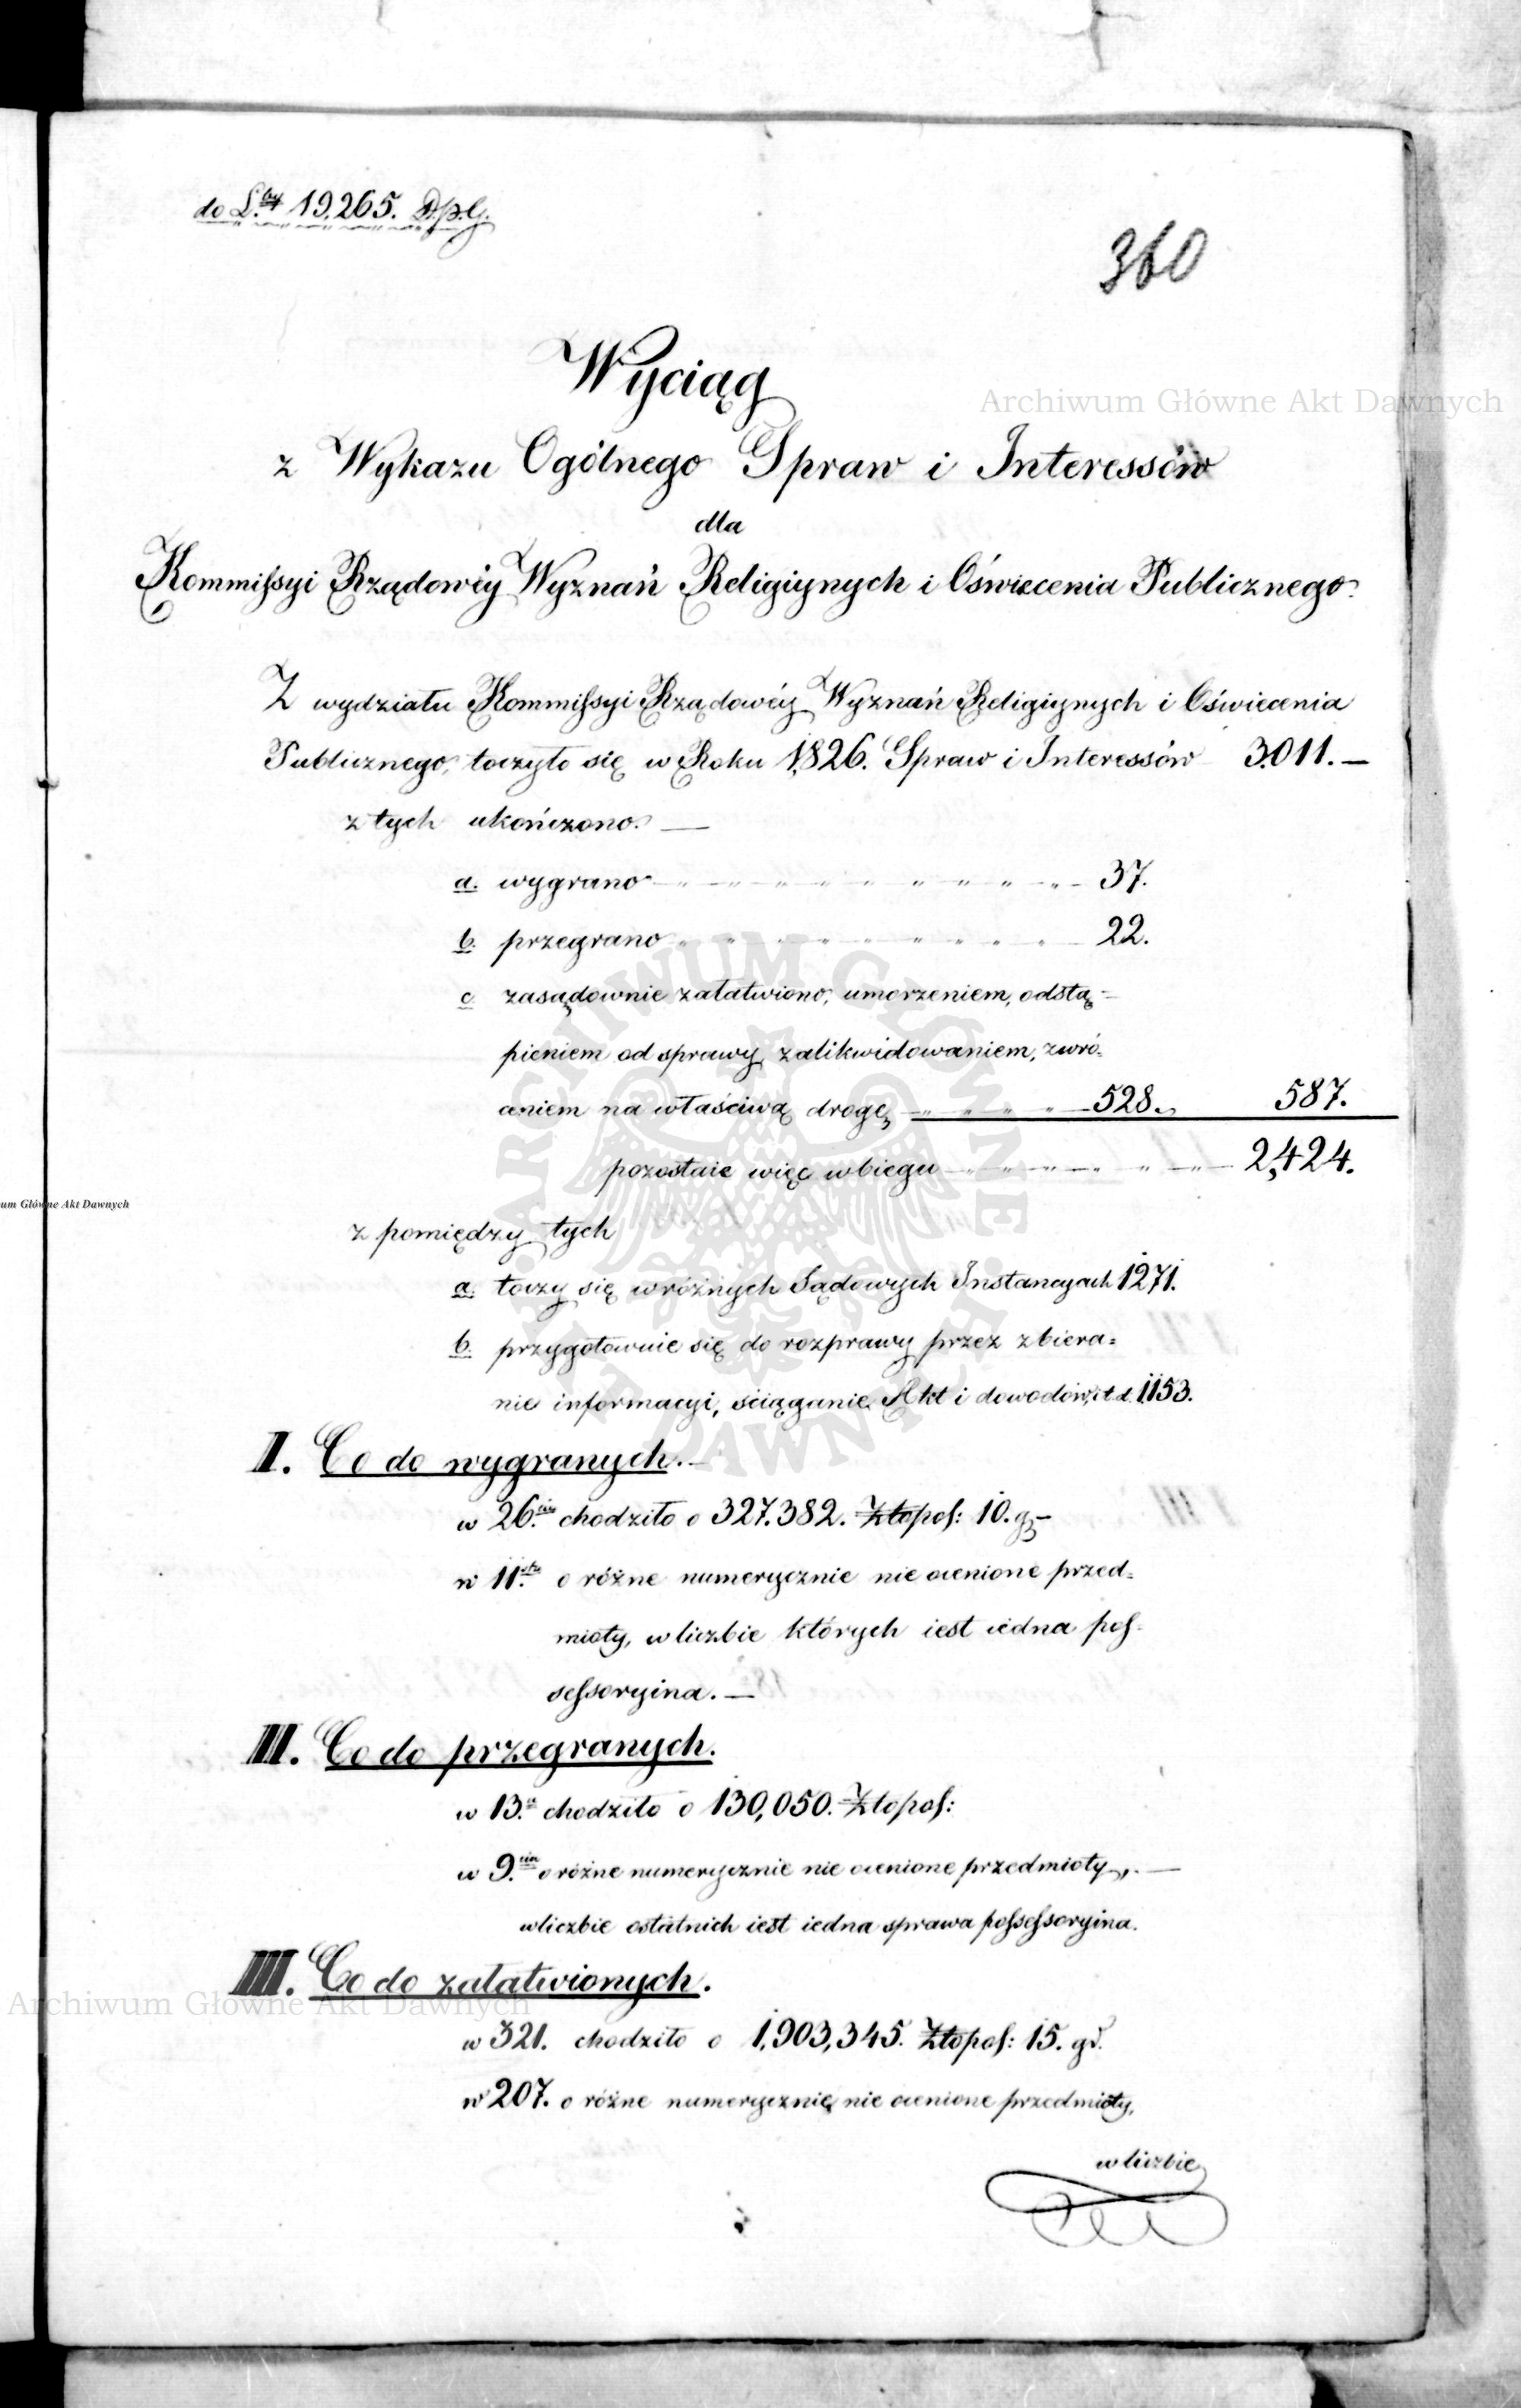 do L.by 19.265. D.p.G.
360
Wyciąg
Archiwum Główne Akt Dawnych
z Wykazu Ogólnego Spraw i Interessów
dla
Kommissyi Rządowéy Wyznań Religiynych i Oświecenia Publicznego.
Z wydziału Kommissyi Rządowéy Wyznań Religiynych i Oświecenia
Publicznego, toczyło się w Roku 1826. Spraw i Interessów 3.011. —
z tych ukończono. —
a. wygrano 37.
b. przegrano 22.
c. zasądownie załatwiono, umorzeniem, odstą=
pieniem od sprawy, zalikwidowaniem, zwró=
ceniem na właściwą drogę 528. 587.
pozostaie więc w biegu 2,424.
um Główne Akt Dawnych
z pomiędzy tych
a. toczy się w różnych Sądowych Instancyach 1271.
b. przygotowuie się do rozprawy przez zbiera=
nie informacyi, ściąganie Akt i dowodów, i t. d. 1153.
I. Co do wygranych. —
w 26.ciu chodziło o 327.382. Złopols: 10. g. —
w 11.stu o różne numerycznie nie ocenione przed=
mioty, w liczbie których iest iedna pos=
sessoryina. —
II. Co do przegranych.
w 13.u chodziło o 130,050. Złopols:
w 9.ciu o różne numerycznie nie ocenione przedmioty, —
w liczbie ostatnich iest iedna sprawa possessoryina.
III. Co do załatwionych.
Archiwum Główne Akt Dawnych
w 321. chodziło o 1,903,345. Złopols: 15. gr.
w 207. o różne numerycznie nie ocenione przedmioty,
w liczbie
ARCHIWUM GŁÓWNE AKT DAWNYCH